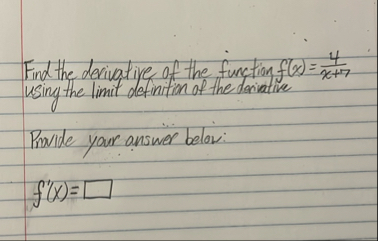 Find the derivative of the function f(x) = 4/(x+7)
using the limit definition of the derivative
Provide your answer below:
f'(x) = □